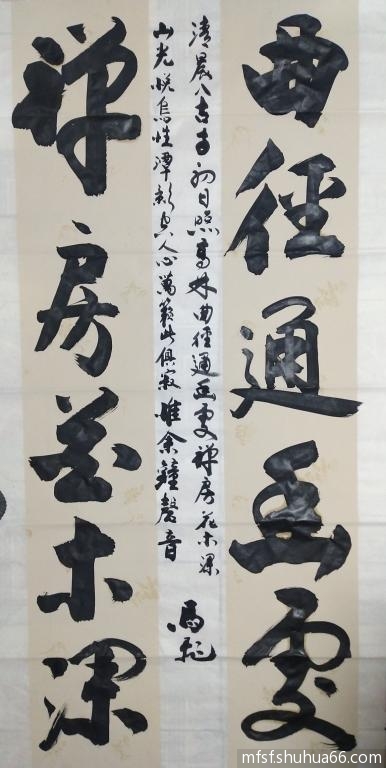 曲徑通幽處
清晨入古寺初日照高林曲徑通幽處禪房花木深
山光悦鳥性潭影空人心萬籟此俱寂惟余鐘磬音
馬
禅房花木深
mfsfshuhua66.com